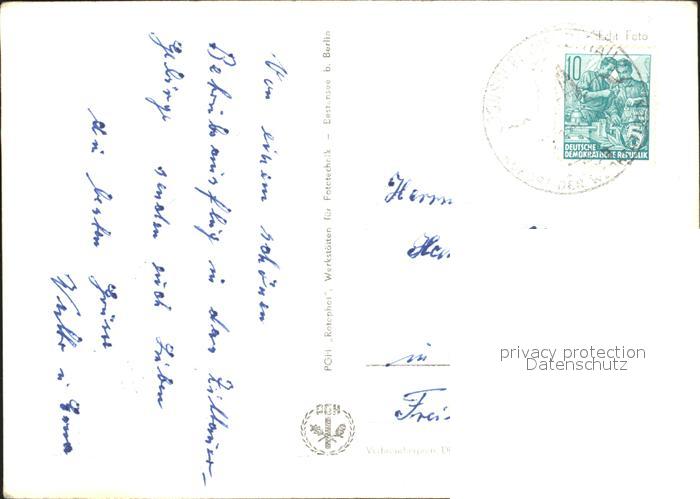 Von einem schönen
Betriebsausflug in das Zittauer-
Gebirge senden euch Lieben
die besten Grüße
u. Erna
PGH „Rotophot", Werkstätten für Fototechnik – Bestensee b. Berlin
Echt Foto
10
5
DEUTSCHE
DEMOKRATISCHE REPUBLIK
Herrn
in
Frei-
Verbraucherpreis
privacy protection
Datenschutz